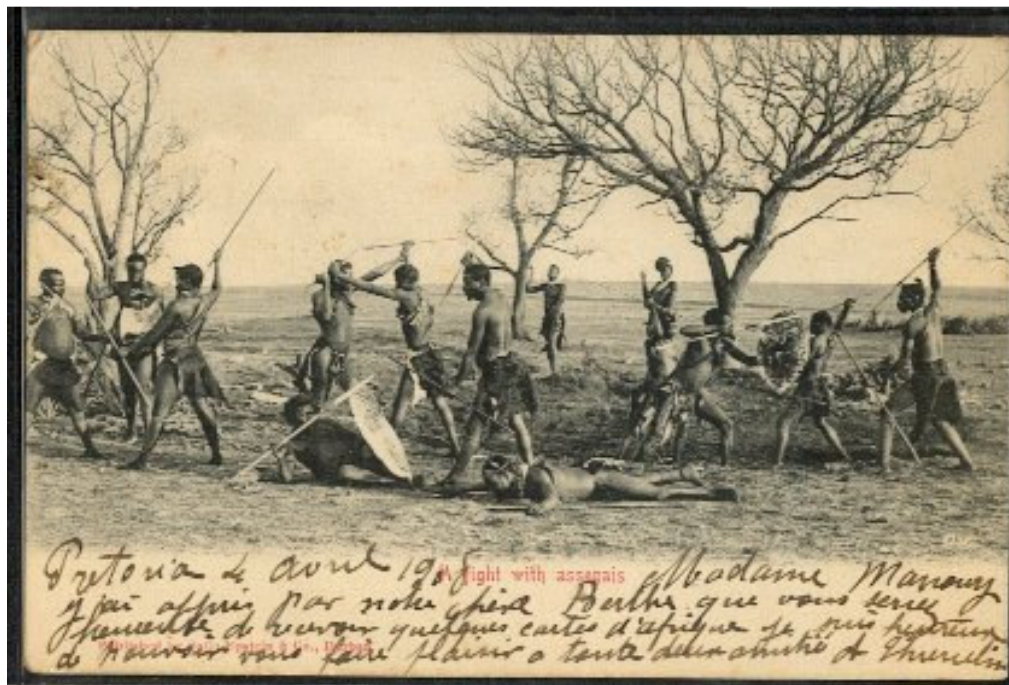 A fight with assegais
Pretoria 4 avril 190 Madame Manoury
j'ai appris par notre chère Berthe que vous seriez
heureuse de recevoir quelques cartes d'afrique je suis heureux
de pouvoir vous faire plaisir a toute deux amitié A Thieulin
Published by & Co., Durban